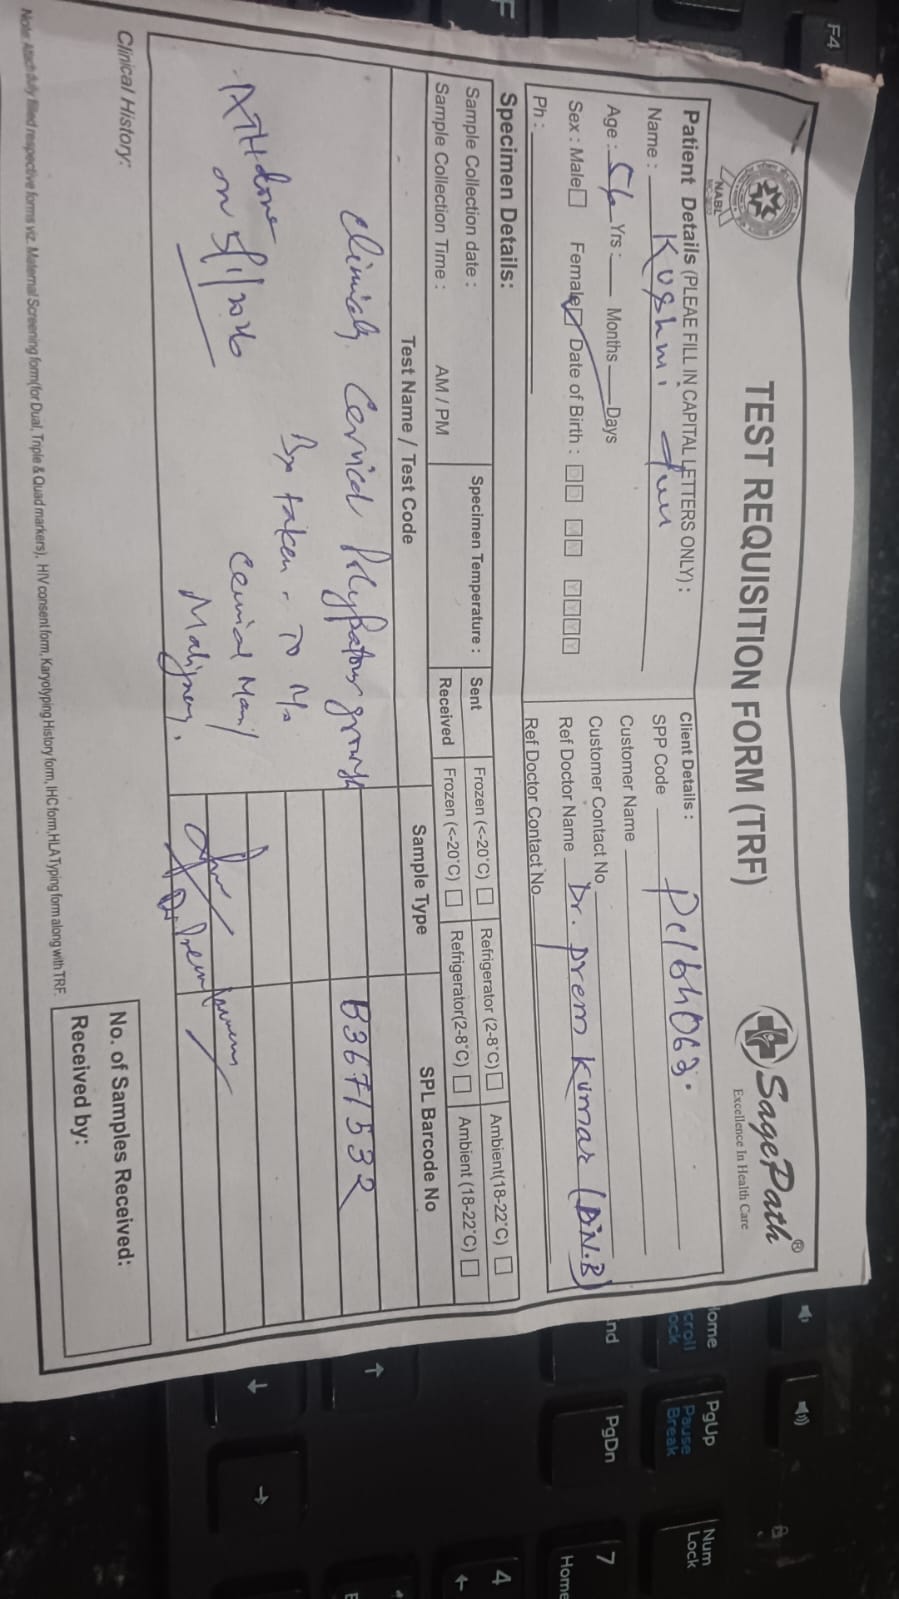 TEST REQUISITION FORM (TRF)
NABL
SagePath®
Excellence In Health Care
Patient Details (PLEAE FILL IN CAPITAL LETTERS ONLY) :
Name : Kushmi
Age : 56 Yrs : Months Days
Sex : Male Female Date of Birth : Y Y Y Y
Ph :
Client Details :
SPP Code
Customer Name
Customer Contact No
Ref Doctor Name Dr. prem kumar (D.N.B)
Ref Doctor Contact No
Specimen Details:
Sample Collection date :
Sample Collection Time : AM / PM
Specimen Temperature :
Sent Frozen (<-20°C) Refrigerator (2-8°C) Ambient(18-22°C)
Received Frozen (<-20°C) Refrigerator(2-8°C) Ambient (18-22°C)
Test Name / Test Code Sample Type SPL Barcode No
Clinically Cervical Polypatous growth B3671532
Bx taken - To R/o
Cervical
Maligancy.
ATH done
on 5/1/2026
Dr Prem
Clinical History:
No. of Samples Received:
Received by:
Note: Attach dully filled respective forms viz. Maternal Screening form(for Dual, Triple & Quad markers), HIV consent form, Karyotyping History form, IHC form,HLA Typing form along with TRF.
F4
Home
Scroll
Lock
PgUp
Pause
Break
Num
Lock
PgDn
7
Home
4